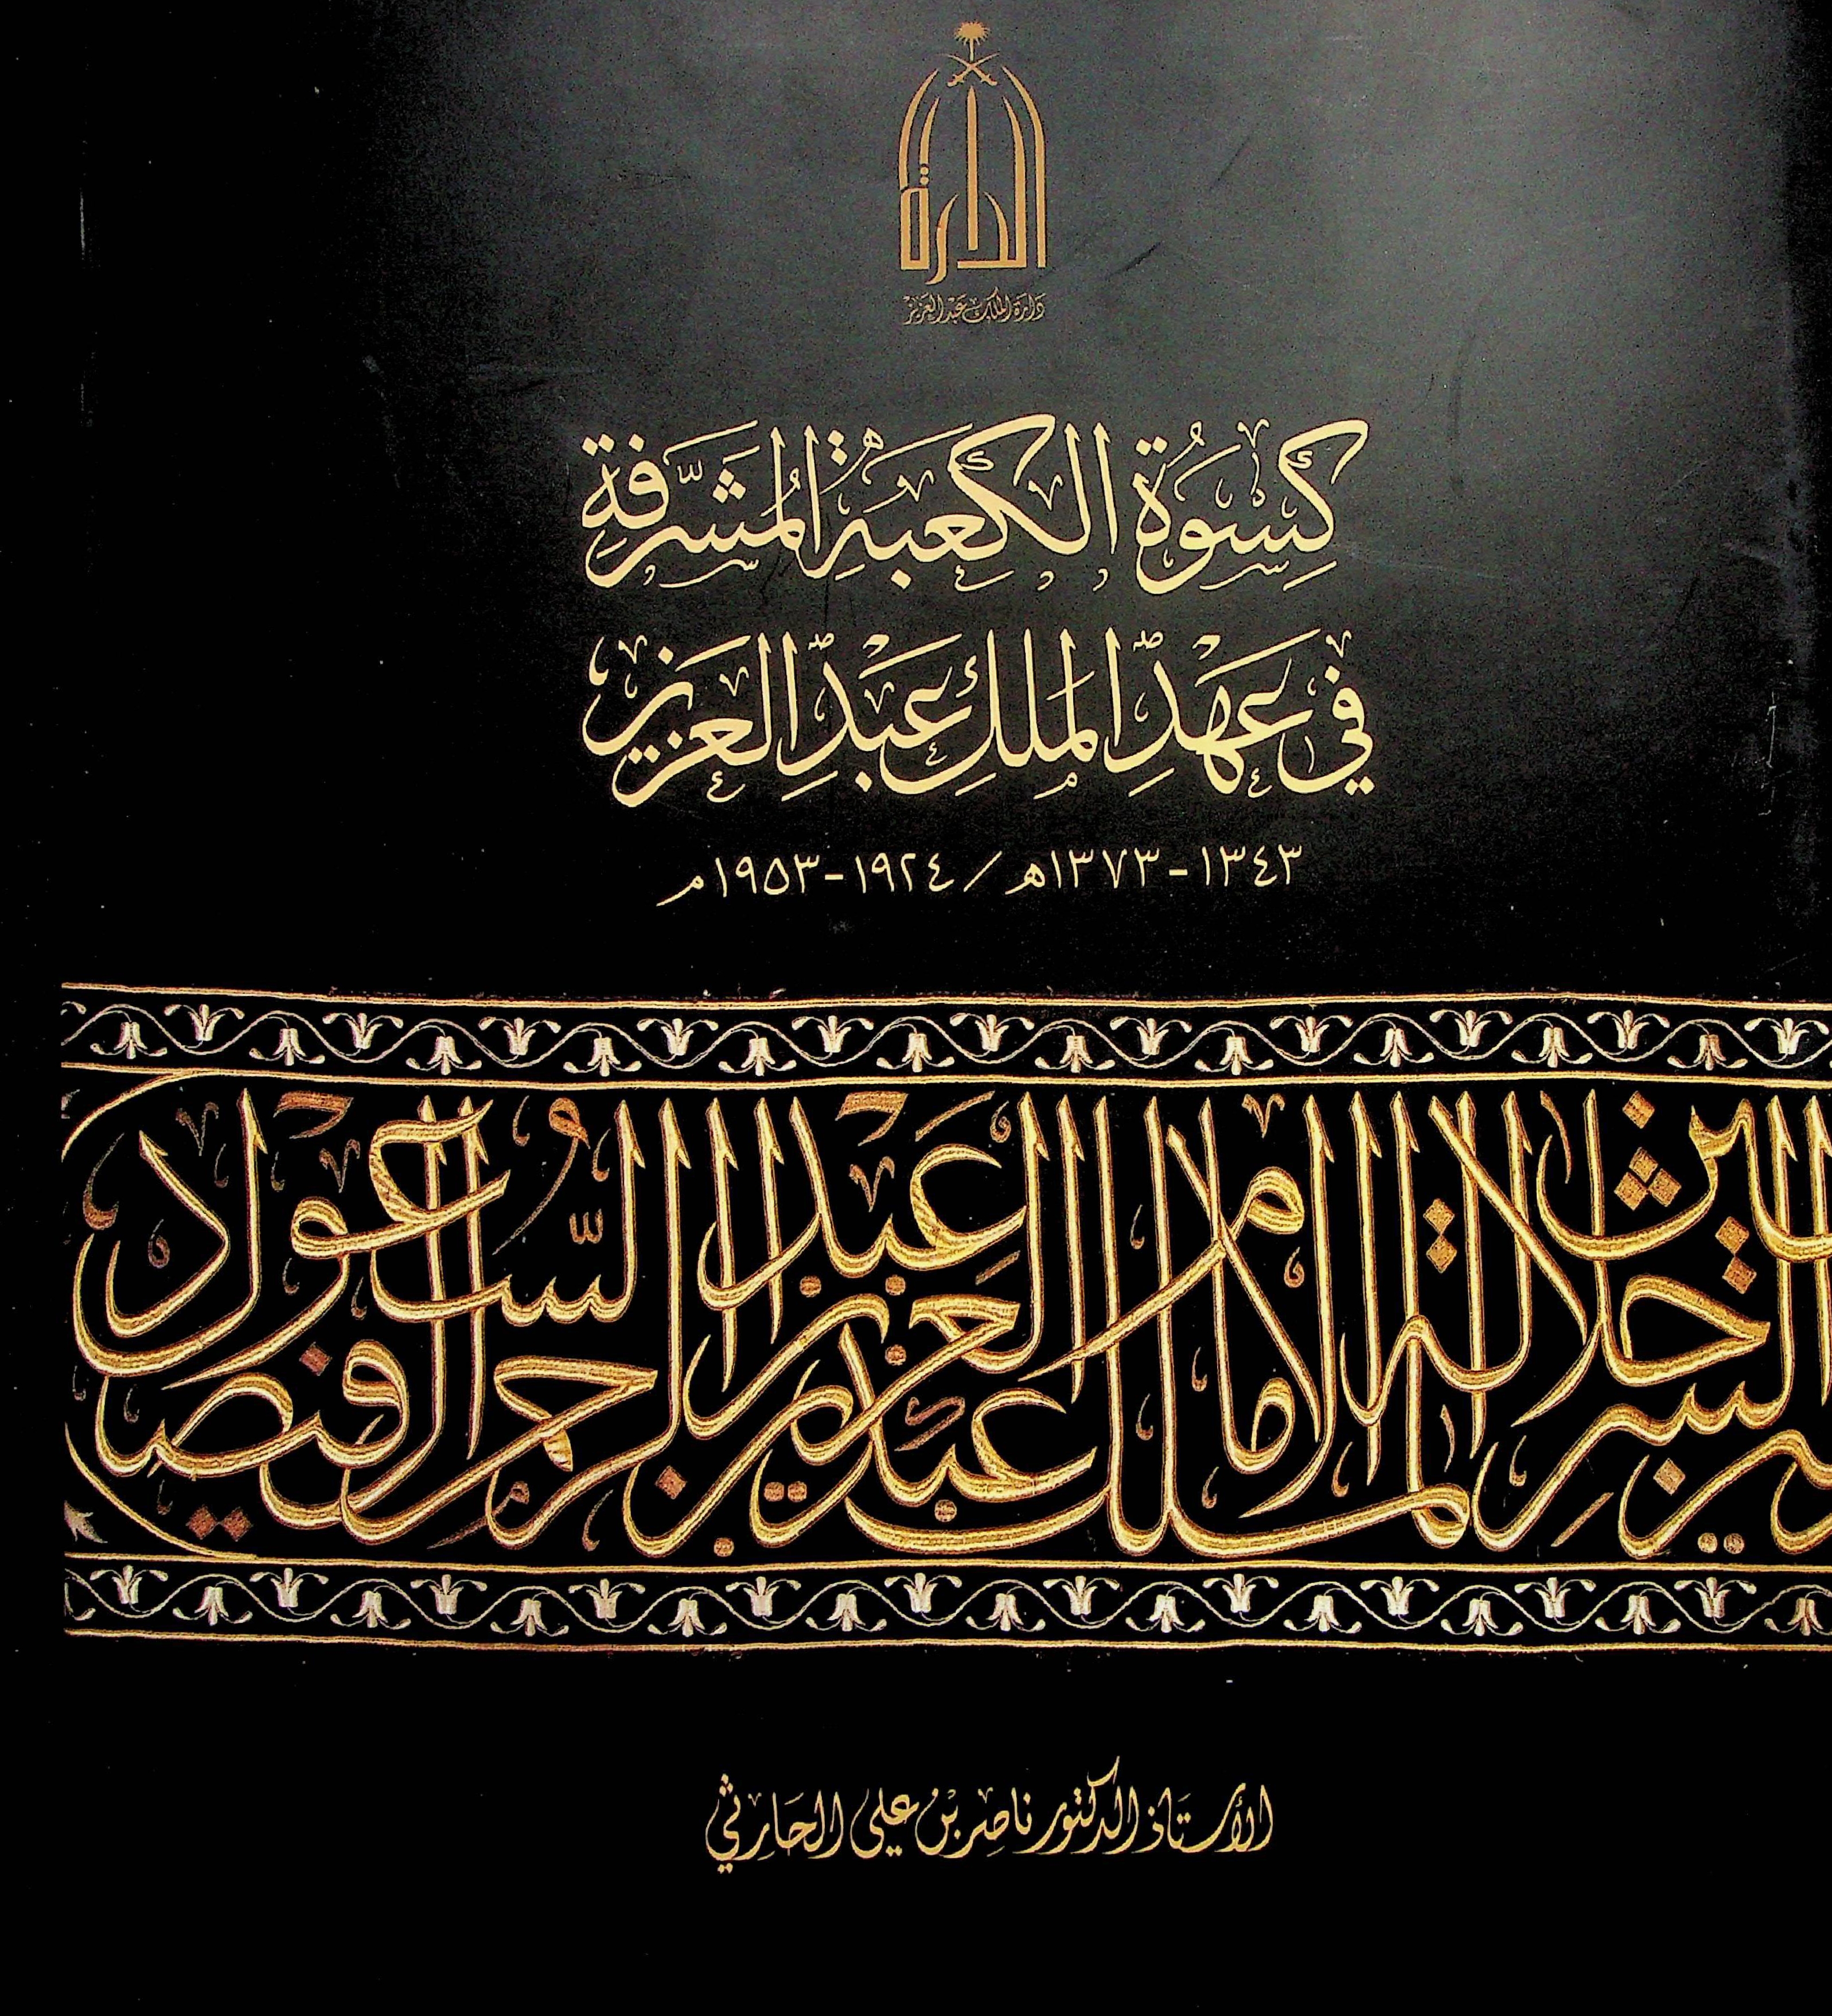 الدارة
دارة الملك عبدالعزيز
كِسْوَةُ الكَعْبَةِ المُشَرَّفَةِ
في عَهْدِ المَلِكِ عَبْدِ العَزِيزِ
١٣٤٣-١٣٧٣هـ/١٩٢٤-١٩٥٣م
جلالة الإمام عبد العزيز السعود
الملك عبد الرحمن الفيصل
الأستاذ الدكتور ناصر بن علي الحارثي